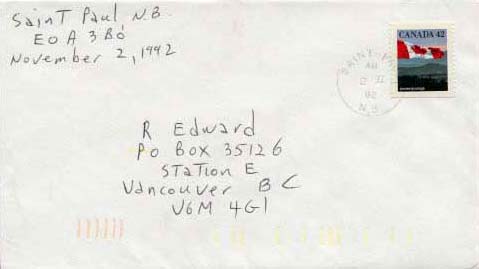 Saint Paul N.B.
E0A 3B0
November 2, 1992
CANADA 42
SAINT-P
AM
2 XI
92
N.B.
R Edward
PO Box 35126
Station E
Vancouver BC
V6M 4G1